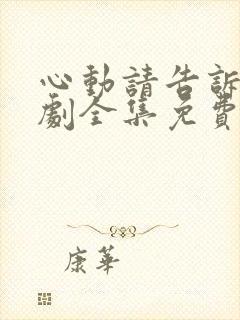 心動請告訴
劇全集免費
康華